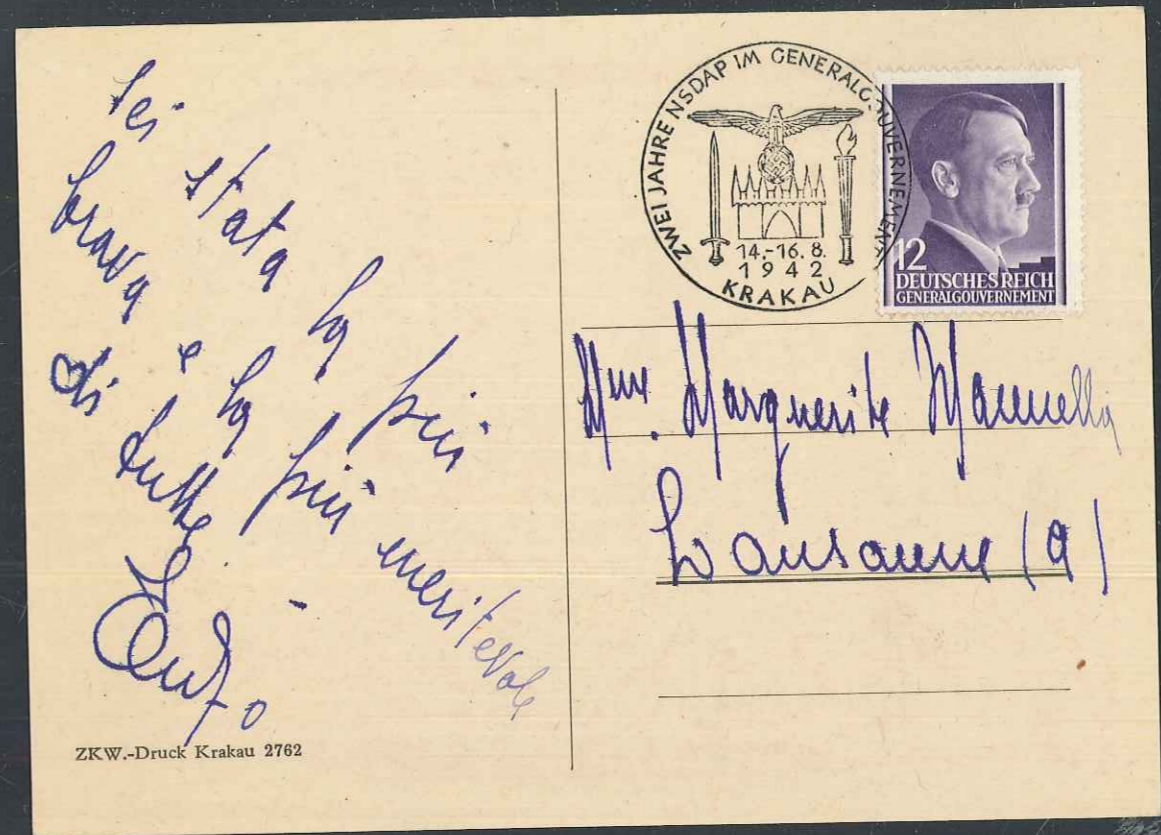 Sei stata la più
brava e la più meritevole
di tutte.
Enzo
ZKW.-Druck Krakau 2762
ZWEI JAHRE NSDAP IM GENERALGOUVERNEMENT
14.-16.8.
1942
KRAKAU
12
DEUTSCHES REICH
GENERALGOUVERNEMENT
Mme. Marguerite
Lausanne (9)